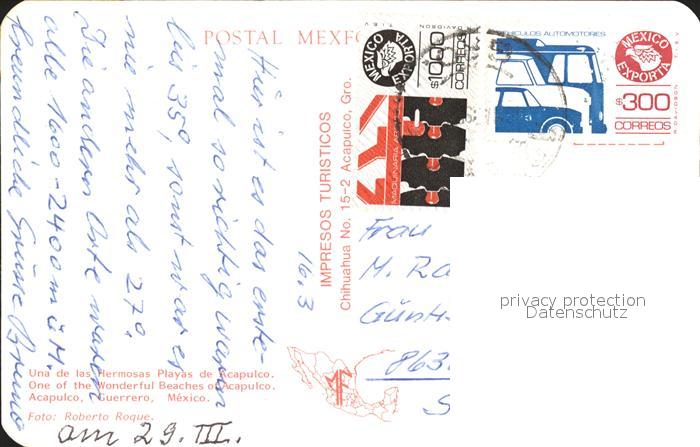 POSTAL MEXFO
Hier ist es das erste-
mal so richtig warm
bis 35°, sonst war es
nie mehr als 27°.
Die anderen Orte waren
alle 1600-2400 m ü. M.
freundliche Grüsse Bruno
16.3
IMPRESOS TURISTICOS
Chihuahua No. 15-2 Acapulco, Gro.
MEXICO
EXPORTA
$1000
CORREOS
T.I.E.V.
R. DAVIDSON
MAQUINARIA
VEHICULOS AUTOMOTORES
MEXICO
EXPORTA
$300
CORREOS
T.I.E.V
R. DAVIDSON
Frau
M. Ra
Günt
863
S
privacy protection
Datenschutz
MF
Una de las Hermosas Playas de Acapulco.
One of the Wonderful Beaches of Acapulco.
Acapulco, Guerrero, México.
Foto: Roberto Roque.
am 29. III.